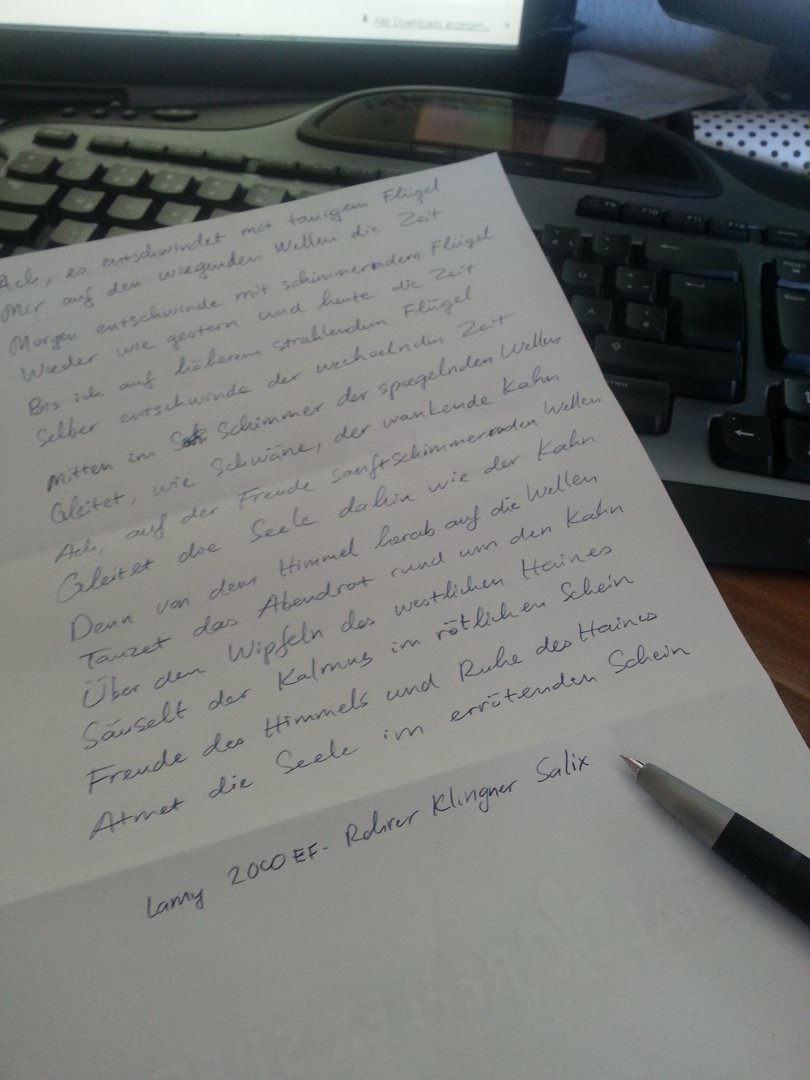 Alle Downloads anzeigen...
Ach, es entschwindet mit tauigem Flügel
Mir auf den wiegenden Wellen die Zeit
Morgen entschwinde mit schimmerndem Flügel
Wieder wie gestern und heute die Zeit
Bis ich auf höherem strahlendem Flügel
Selber entschwinde der wechselnden Zeit
Mitten im Schimmer der spiegelnden Wellen
Gleitet, wie Schwäne, der wankende Kahn
Ach, auf der Freude sanftschimmernden Wellen
Gleitet die Seele dahin wie der Kahn
Denn von dem Himmel herab auf die Wellen
Tanzet das Abendrot rund um den Kahn
Über den Wipfeln des westlichen Haines
Säuselt der Kalmus im rötlichen Schein
Freude des Himmels und Ruhe des Haines
Atmet die Seele im errötenden Schein
Lamy 2000 EF - Rohrer Klingner Salix